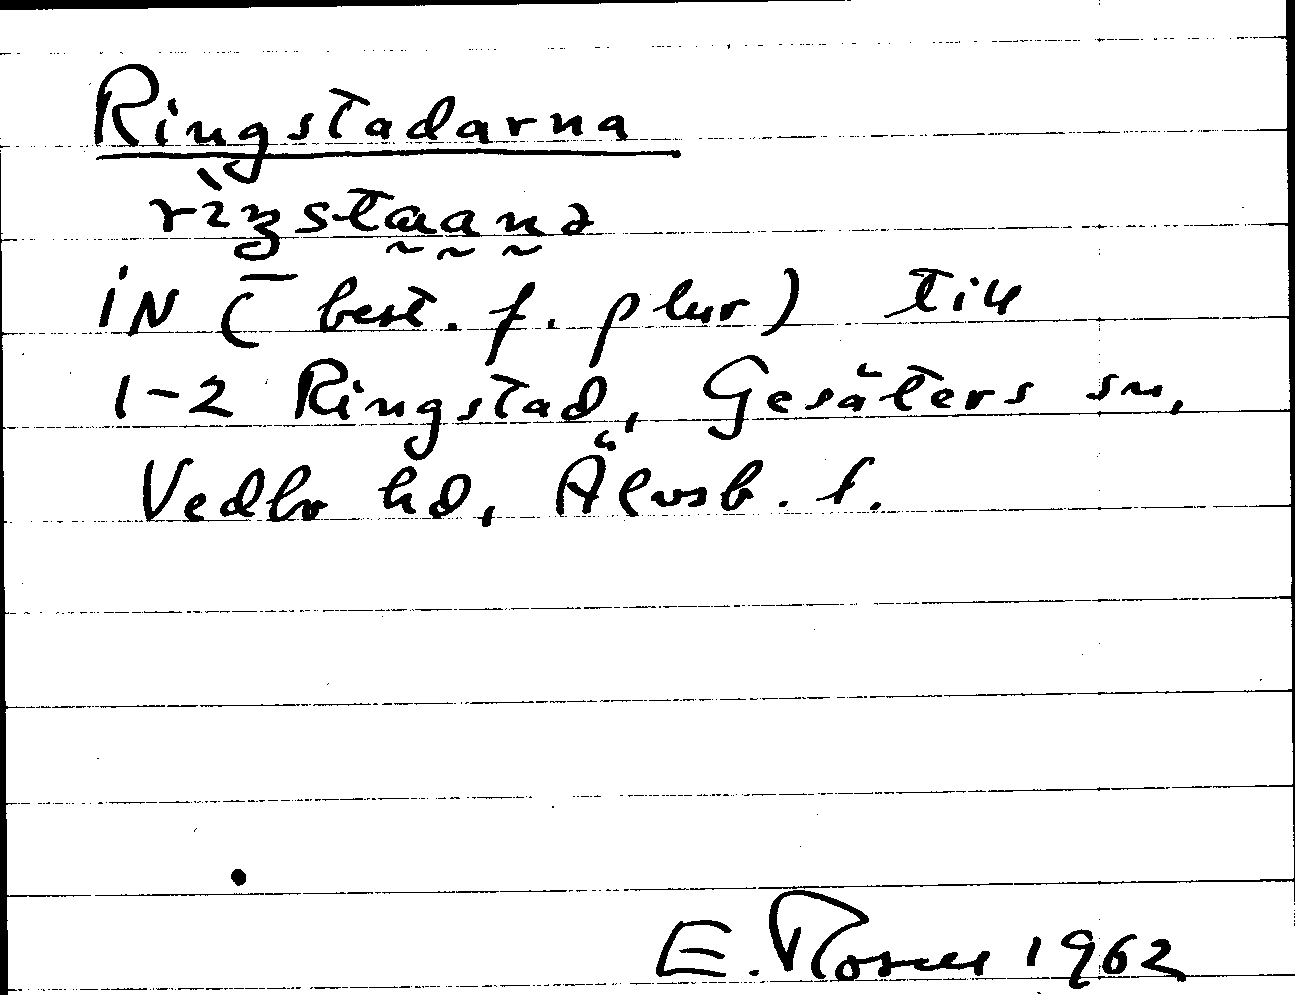 Ringstadarna
rìŋstaana
iN (best. f. plur) till
1-2 Ringstad, Gesäters sn,
Vedbo hd, Älvsb. l.
E. 1962